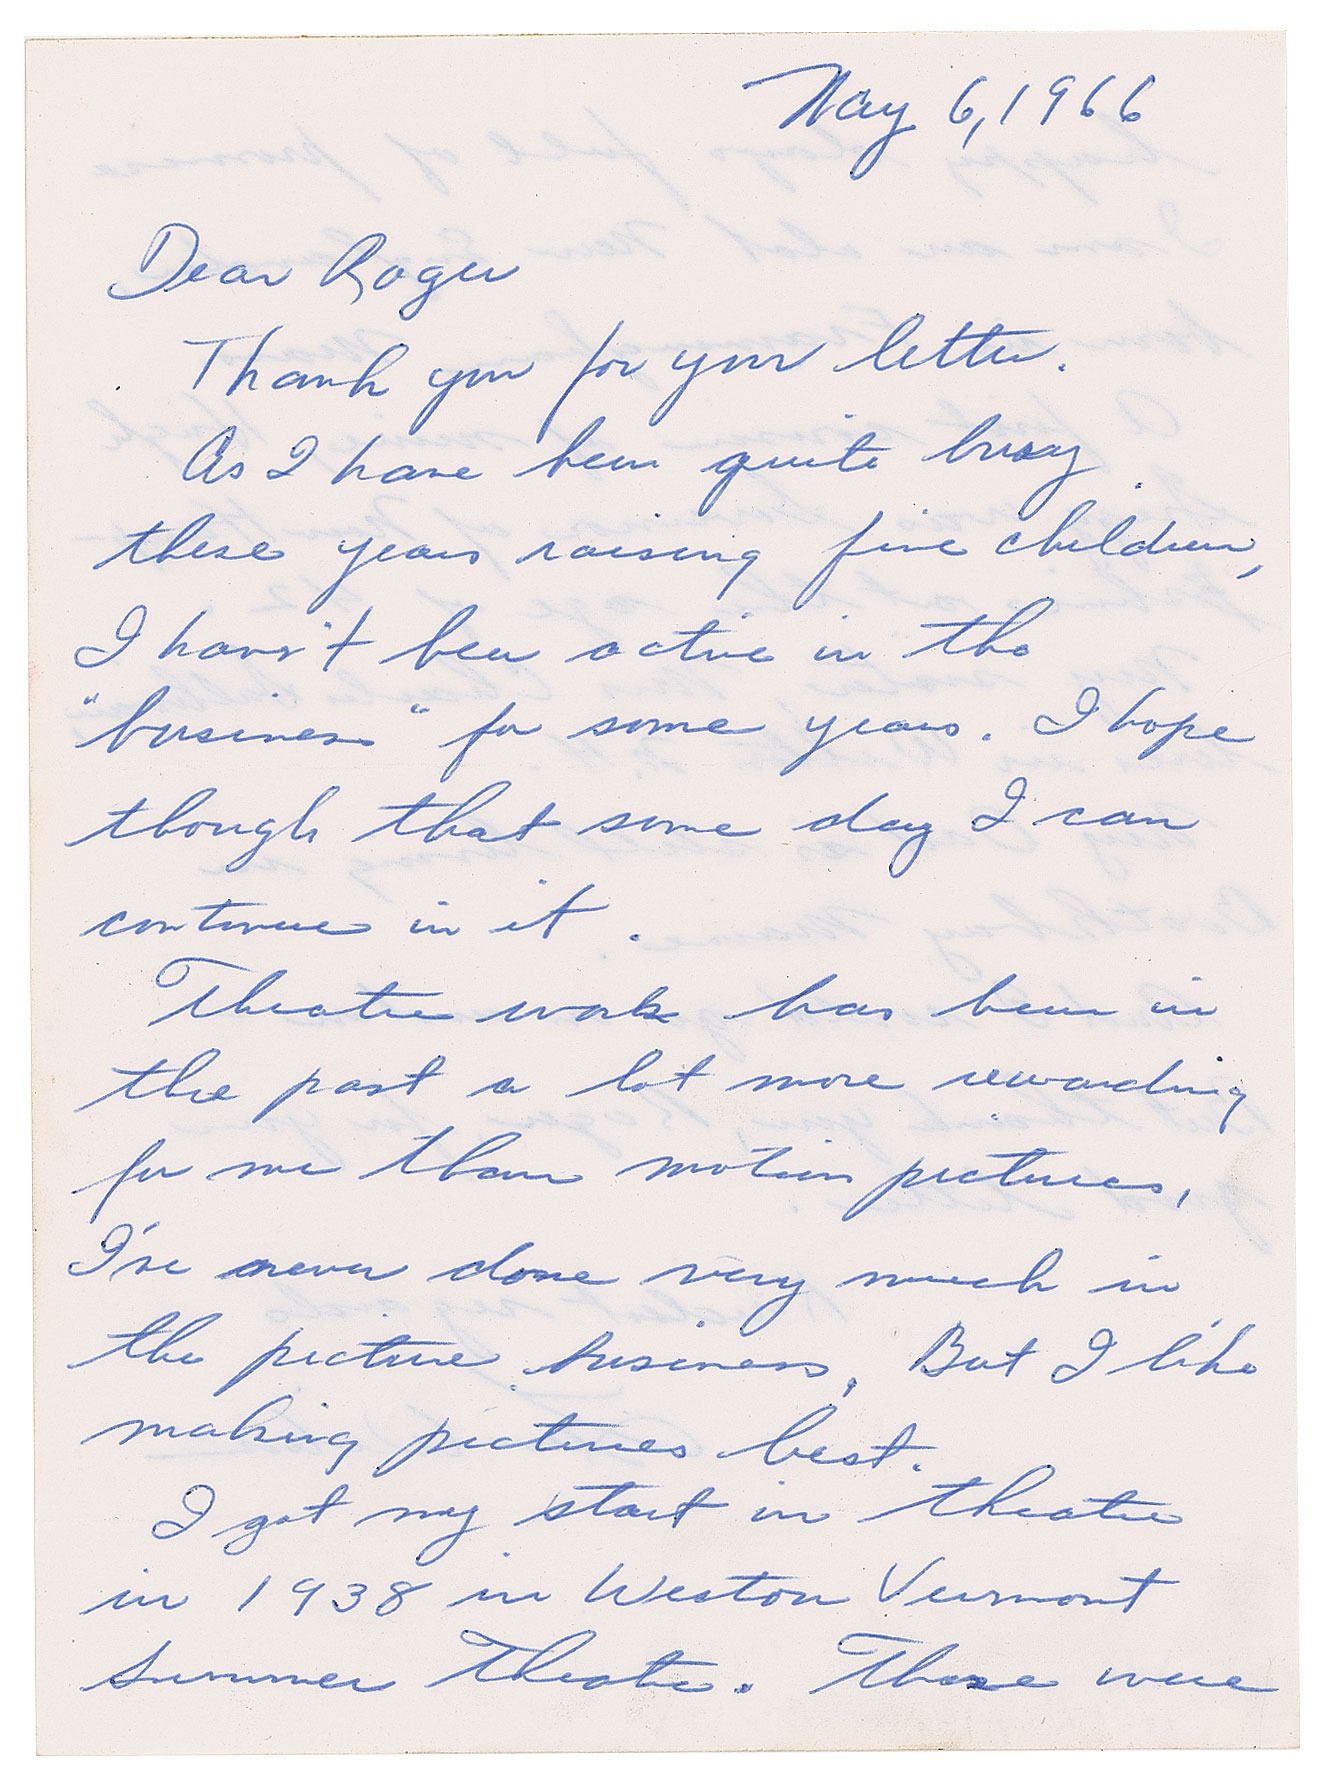 May 6, 1966
Dear Roger
Thank you for your letter.
As I have been quite busy
these years raising five children,
I haven't been active in the
"business" for some years. I hope
though that some day I can
continue in it.
Theatre work has been in
the past a lot more rewarding
for me than motion pictures,
I've never done very much in
the picture business. But I like
making pictures best.
I got my start in theatre
in 1938 in Weston Vermont
Summer Theatre. Those were